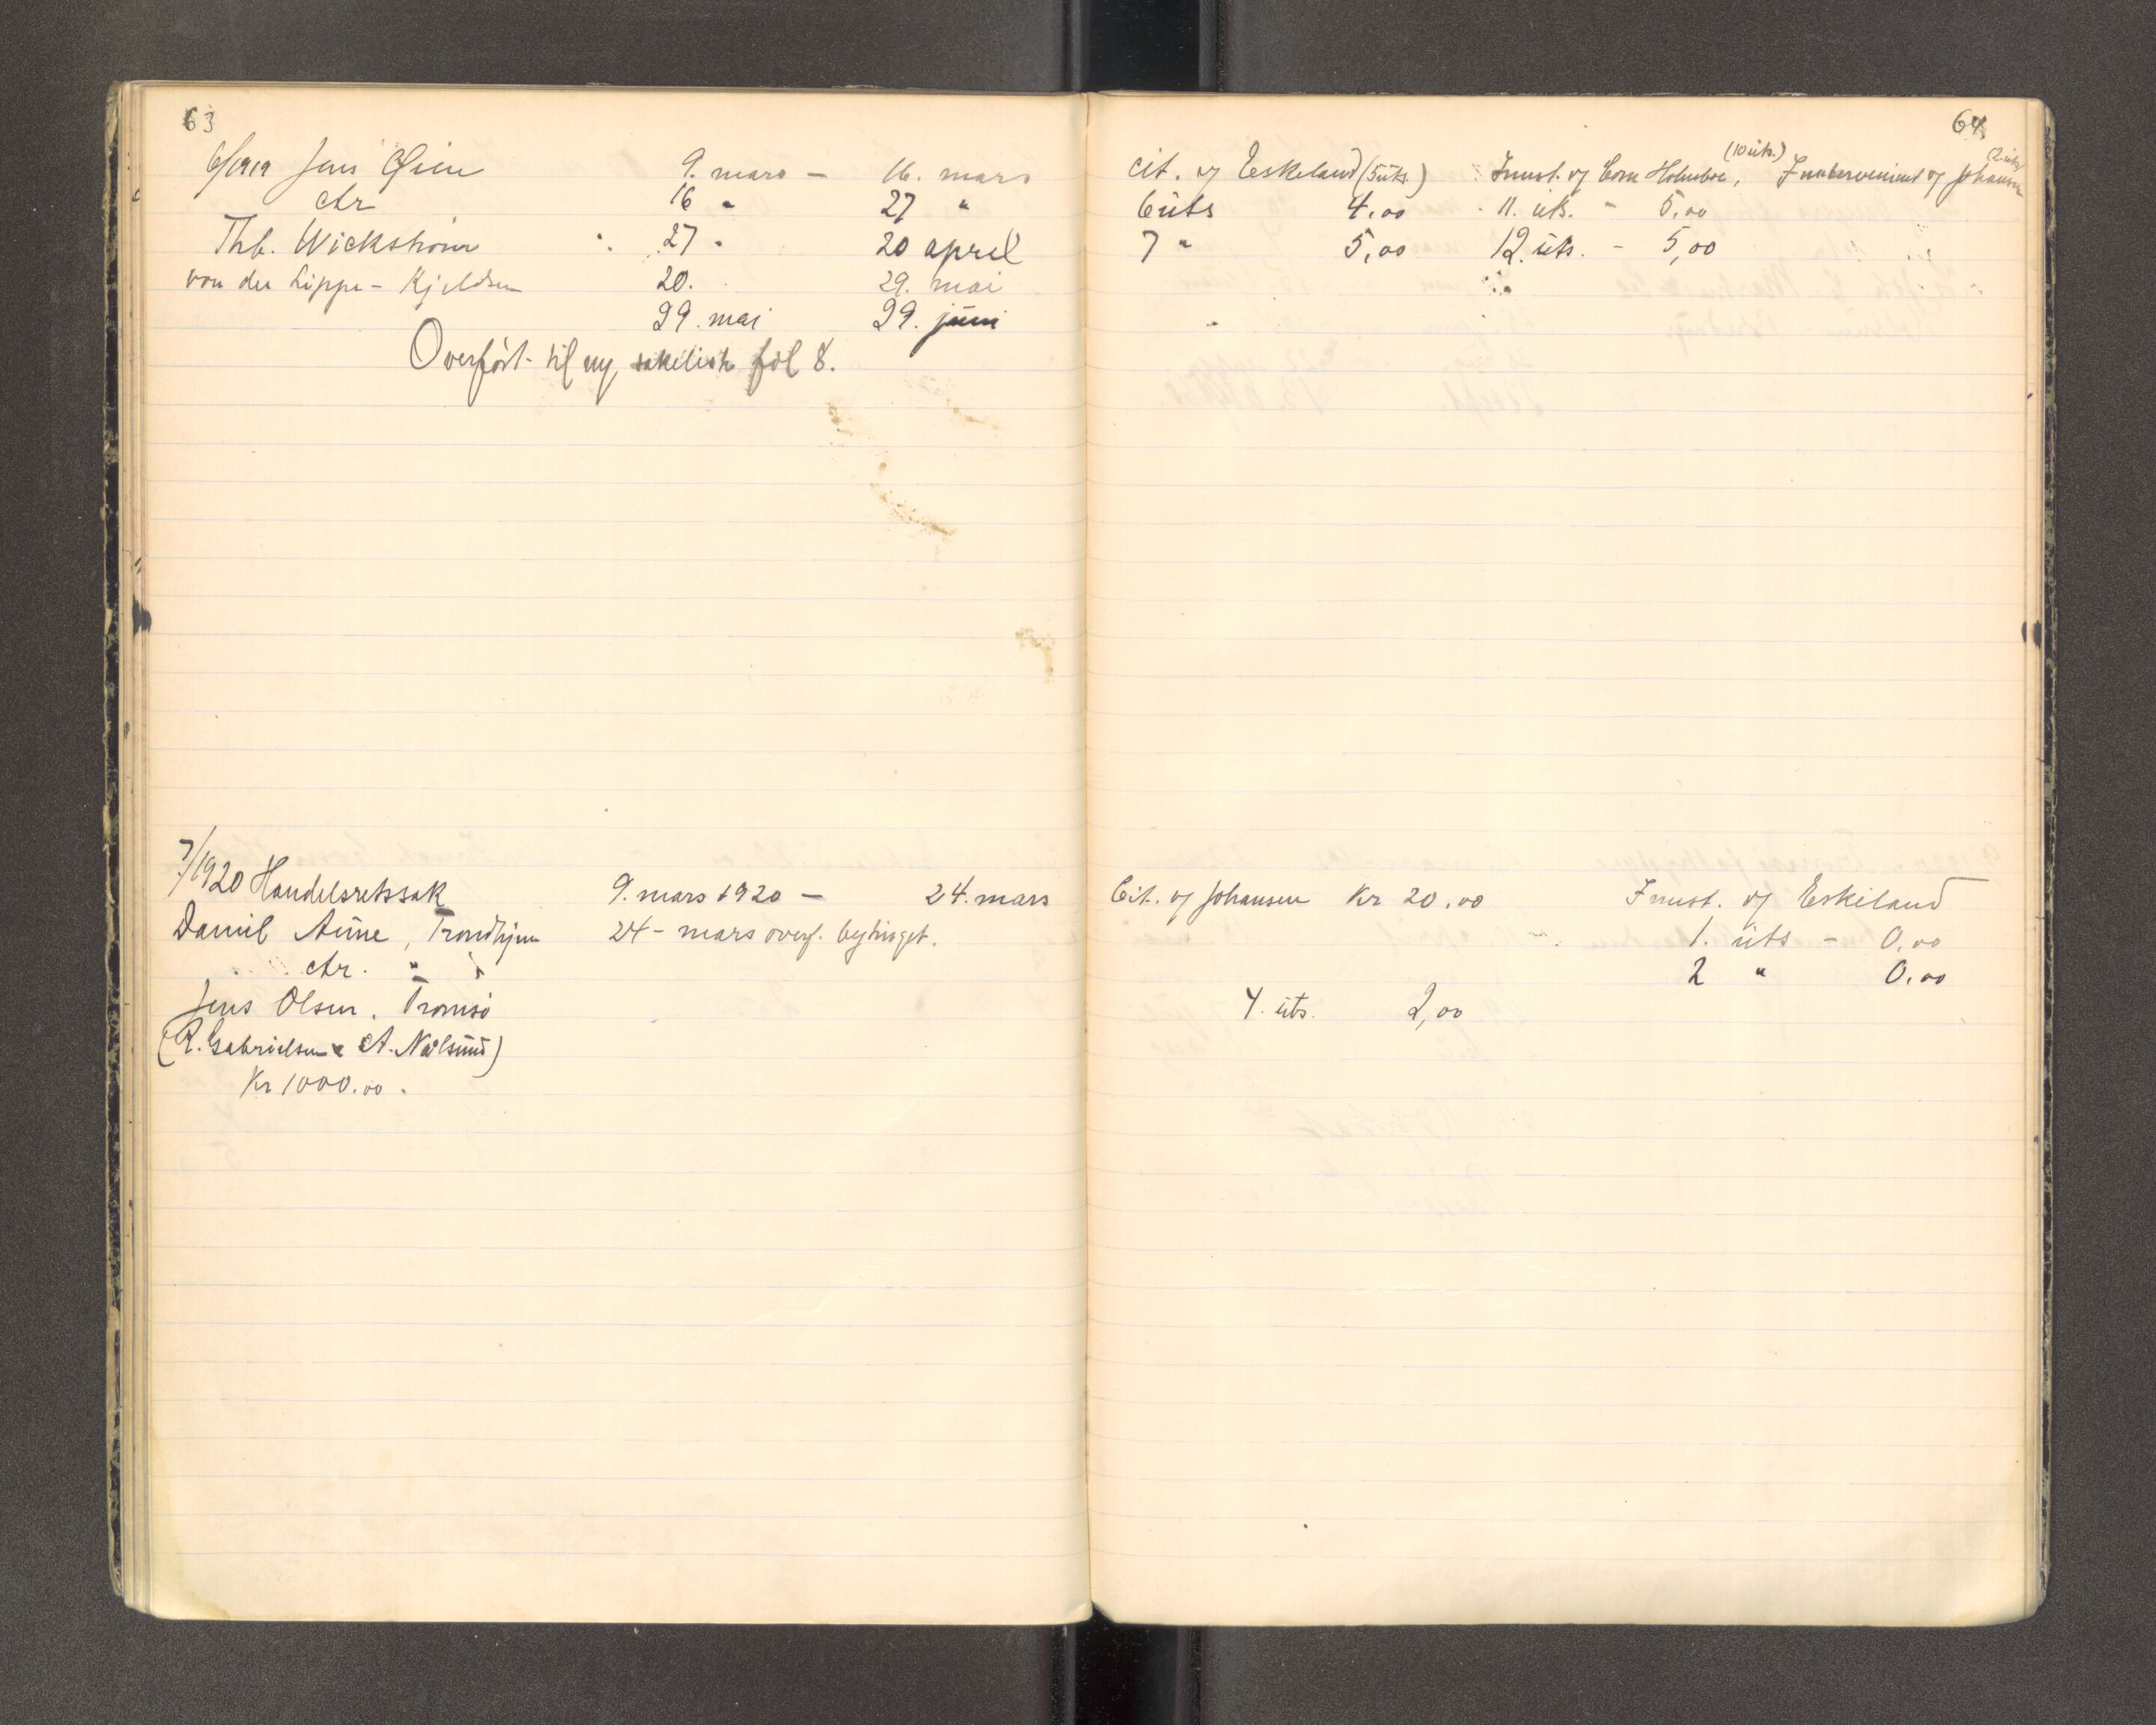 63
6/1919 Jens Øien 9. mars - 16. mars
ctr 16 " 27 "
Thb. Wickstrøm 27 " 20 april
von der Lippe - Kjeldsen 20. 29. mai
29. mai 29. juni
Overført til ny sakeliste fol 8.
7/1920 Handelsretssak 9. mars 1920 - 24. mars
Daniel Aune, Trondhjem 24 - mars overf. bytinget.
ctr.
Jens Olsen, Tromsø
(R. Gabrielsen & A. Nilsund)
Kr 1000.00.
64
cit. v/ Eskeland (5 uts.) Innst. v/ Corn Holmboe, (10 uts.) Intervenient v/ Johansen (2. uts)
6 uts 4,00 11. uts. - 5,00
7 " 5,00 12. uts. - 5,00
Cit. v/ Johansen Kr 20,00 Innst. v/ Eskeland
1. uts - 0,00
2 " 0,00
4. uts. 2,00